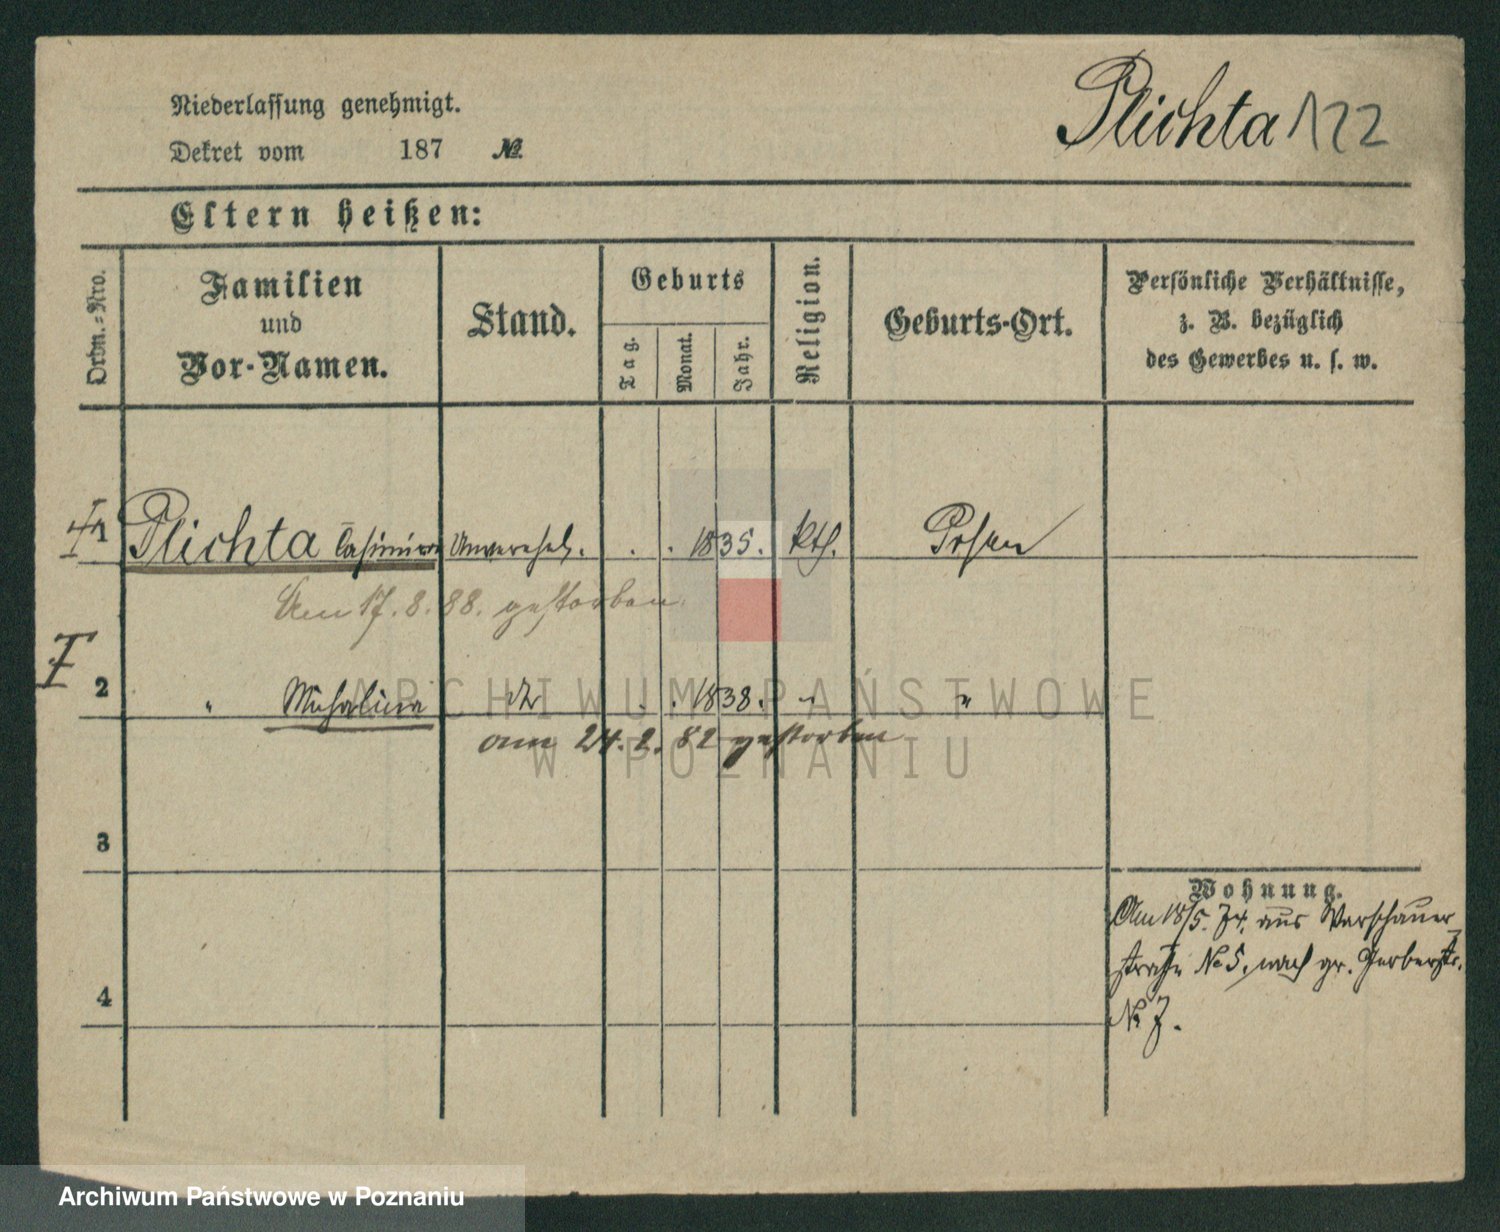 Niederlassung genehmigt.
Dekret vom 187 №
Plichta 122
Eltern heißen:
Ordn.=Nro.
Familien
und
Vor-Namen.
Stand.
Geburts
Tag.
Monat.
Jahr.
Religion.
Geburts-Ort.
Persönliche Verhältnisse,
z. B. bezüglich
des Gewerbes u. s. w.
1 Plichta Casimira Unverehel. . . 1835. kth. Posen
Am 17. 8. 88. gestorben
2 " Michalina dto . . 1838. " "
am 24. 2. 82 gestorben
3
Wohnung.
Am 18/5. 74. aus Warschauer
straße No 5. nach gr. Gerberstr.
4
No 7.
ARCHIWUM PAŃSTWOWE
W POZNANIU
Archiwum Państwowe w Poznaniu